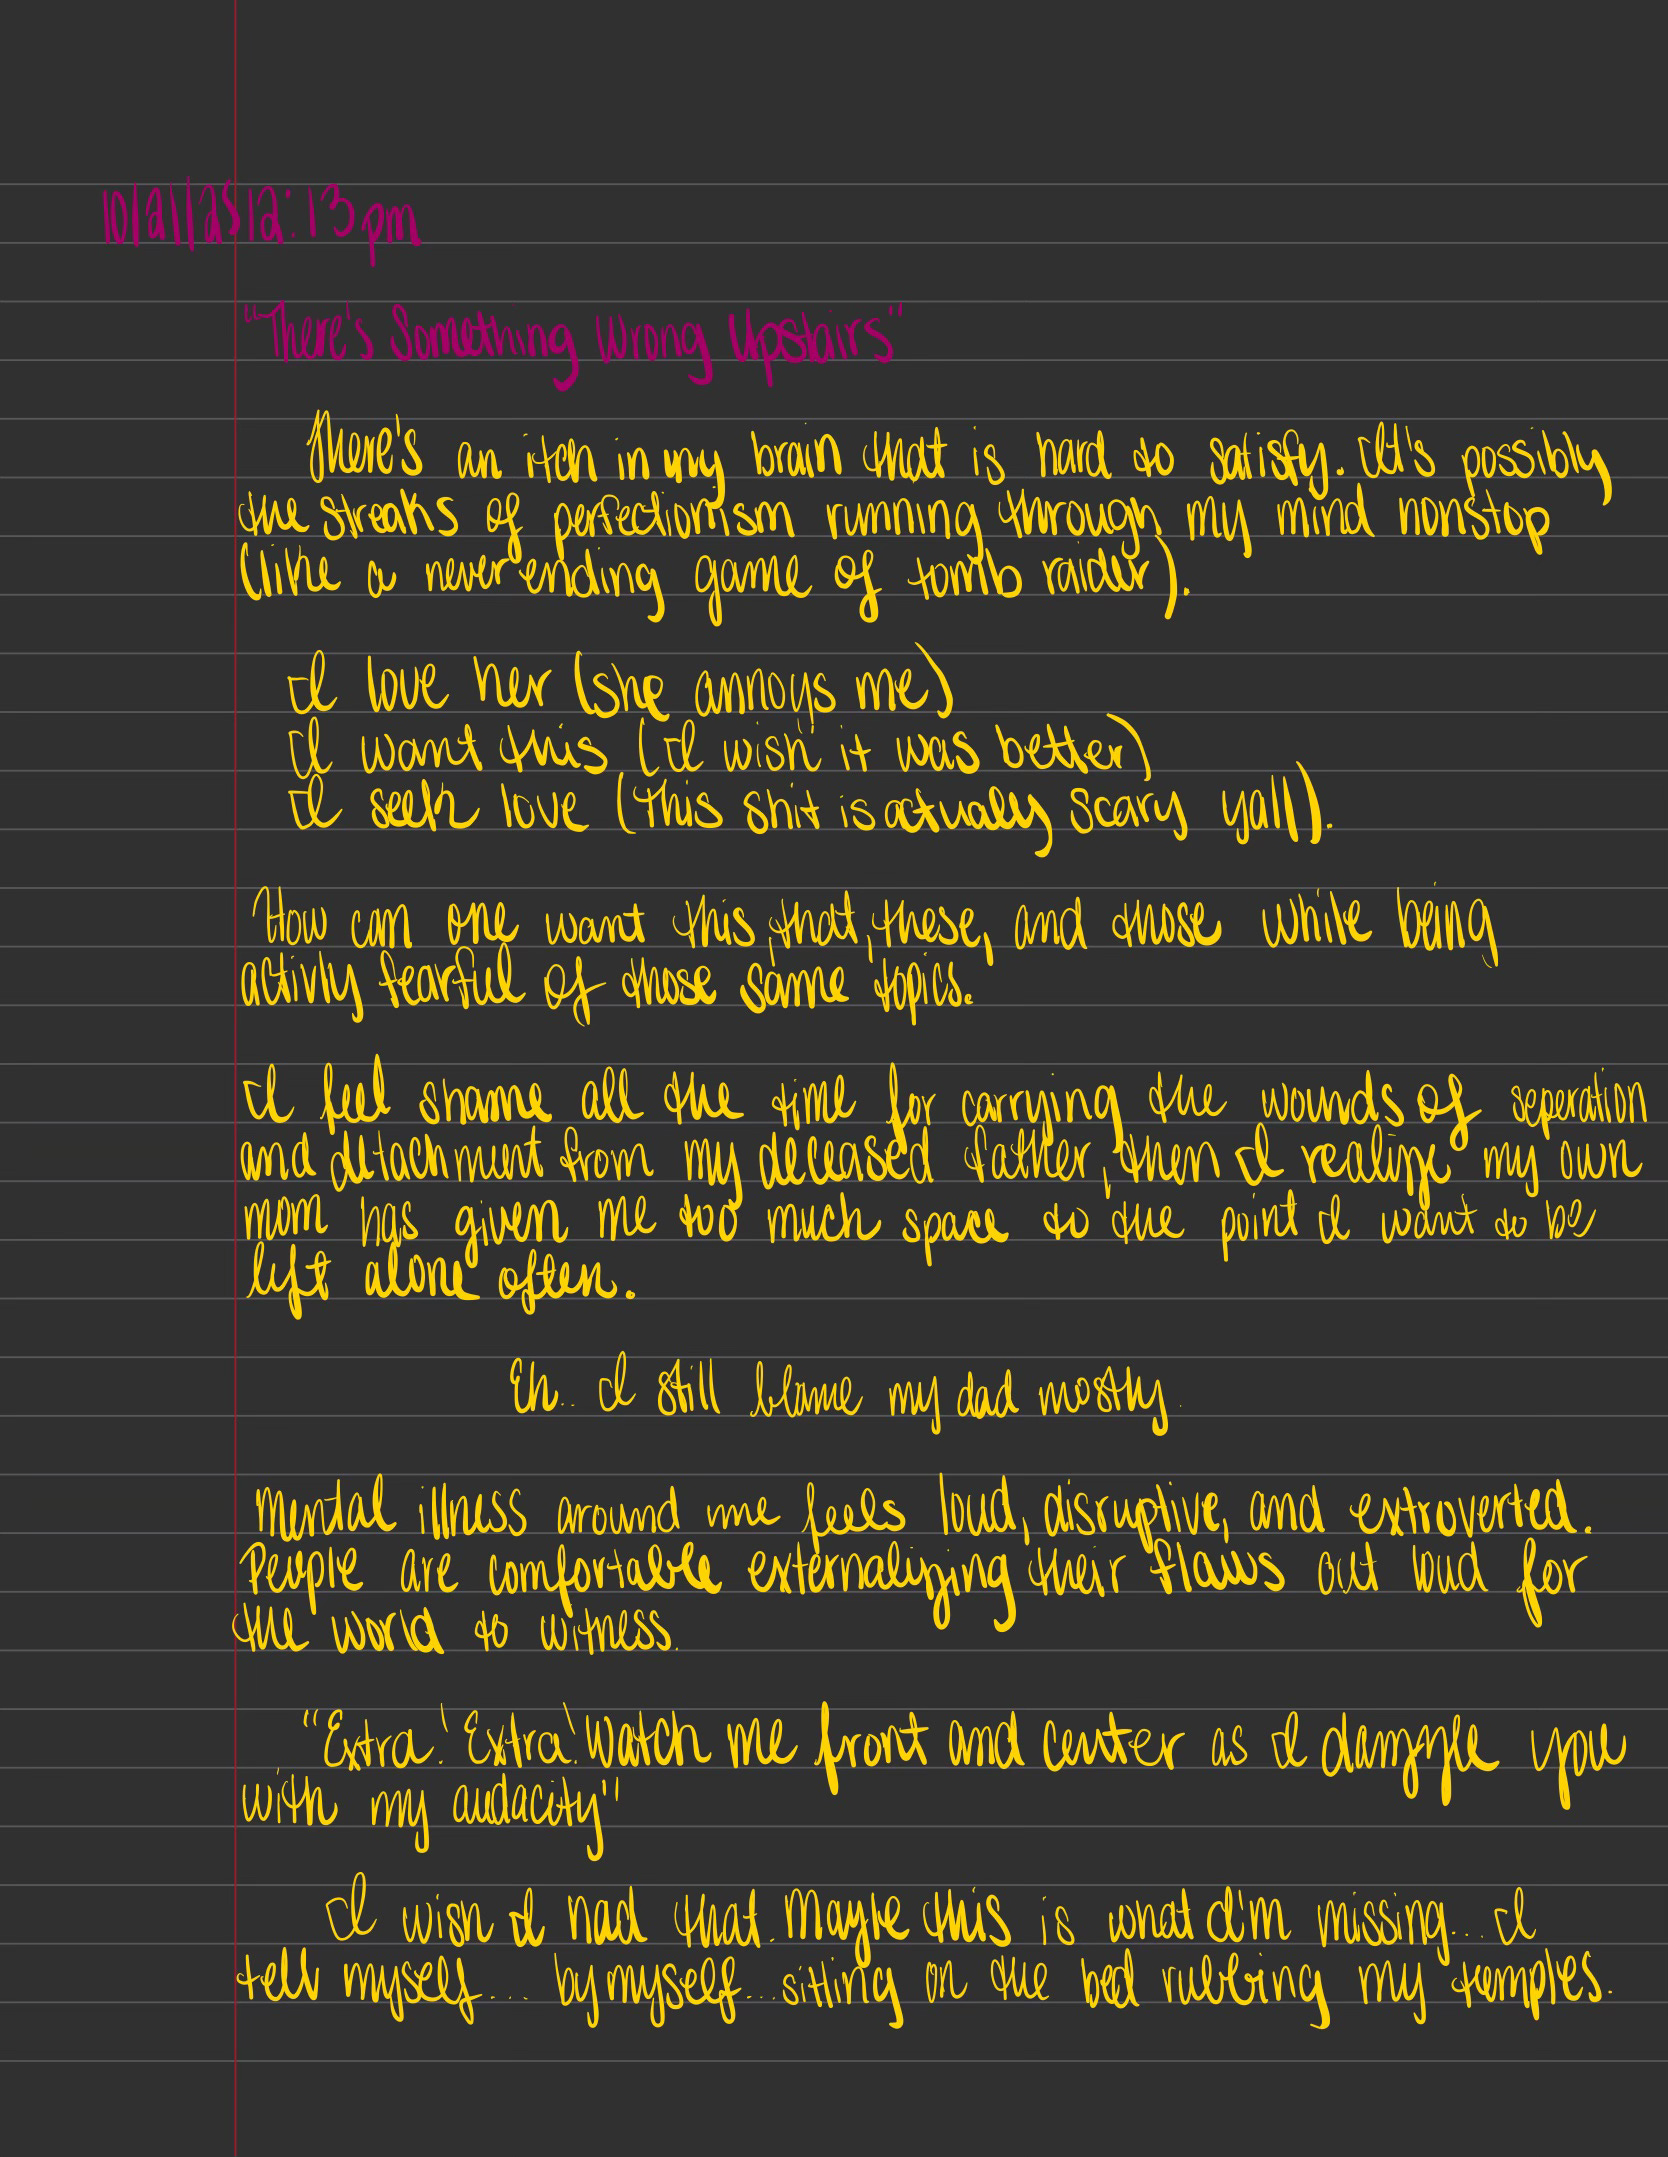 10/21/25 12:13pm
"There's Something Wrong Upstairs"
There's an itch in my brain that is hard to satisfy. It's possibly
the streaks of perfectionism running through my mind nonstop
(like a never ending game of tomb raider).
I love her (she annoys me)
I want this (I wish it was better)
I seek love (this shit is actually scary yall).
How can one want this, that, these, and those while being
activly fearful of those same topics.
I feel shame all the time for carrying the wounds of seperation
and detachment from my deceased father, then I realize my own
mom has given me too much space to the point I want to be
left alone often.
Eh.. I still blame my dad mostly.
Mental illness around me feels loud, disruptive, and extroverted.
People are comfortable externalizing their flaws out loud for
the world to witness.
"Extra! Extra! Watch me front and center as I dazzle you
with my audacity"
I wish I had that. Maybe this is what I'm missing... I
tell myself.... by myself... sitting on the bed rubbing my temples.